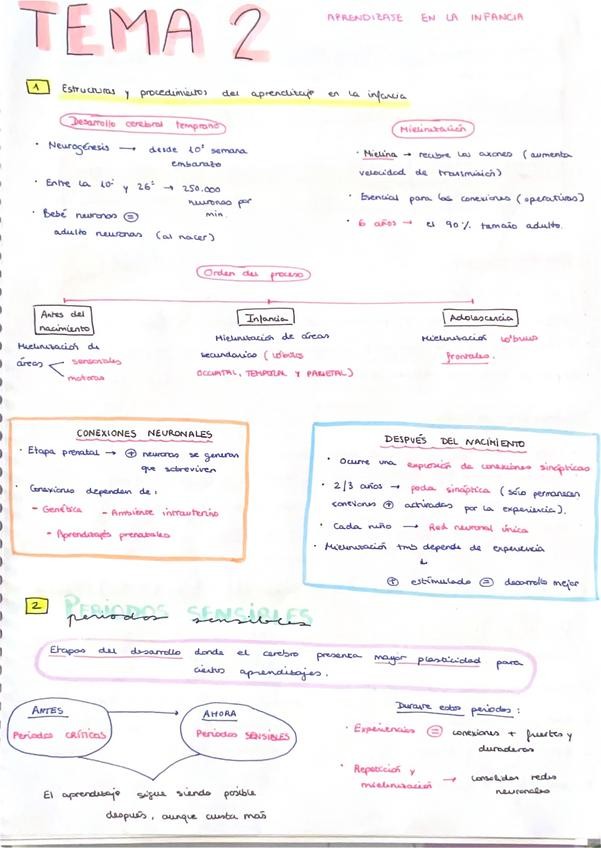 TEMA 2
APRENDIZAJE EN LA INFANCIA
1 Estructuras y procedimientos del aprendizaje en la infancia
Desarrollo cerebral temprano
· Neurogénesis → desde 10ª semana
embarazo
· Entre la 10ª y 26ª → 250.000
neuronas por
min.
· Bebé neuronas =
adulto neuronas (al nacer)
Mielinización
· Mielina → recubre los axones (aumenta
velocidad de transmisión)
· Esencial para las conexiones (operativas)
· 6 años → el 90% tamaño adulto.
Orden del proceso
Antes del
nacimiento
Mielinización de
áreas
sensoriales
motoras
Infancia
Mielinización de áreas
secundarias (lóbulos
OCCIPITAL, TEMPORAL Y PARIETAL)
Adolescencia
Mielinización lóbulos
frontales.
CONEXIONES NEURONALES
· Etapa prenatal → + neuronas se generan
que sobreviven
· Conexiones dependen de:
- Genética - Ambiente intrauterino
- Aprendizajes prenatales
DESPUÉS DEL NACIMIENTO
· Ocurre una explosión de conexiones sinápticas
· 2/3 años → poda sináptica (sólo permanecen
conexiones + activadas por la experiencia).
· Cada niño → Red neuronal única
· Mielinización tmb depende de experiencia
↓
+ estimulado = desarrollo mejor
2 PERIODOS SENSIBLES
periodos sensibles
Etapas del desarrollo donde el cerebro presenta mayor plasticidad para
ciertos aprendizajes.
ANTES
Periodos CRÍTICOS
AHORA
Periodos SENSIBLES
El aprendizaje sigue siendo posible
después, aunque cuesta más
Durante estos periodos:
· Experiencias = conexiones + fuertes y
duraderas
· Repetición y
mielinización → consolidan redes
neuronales